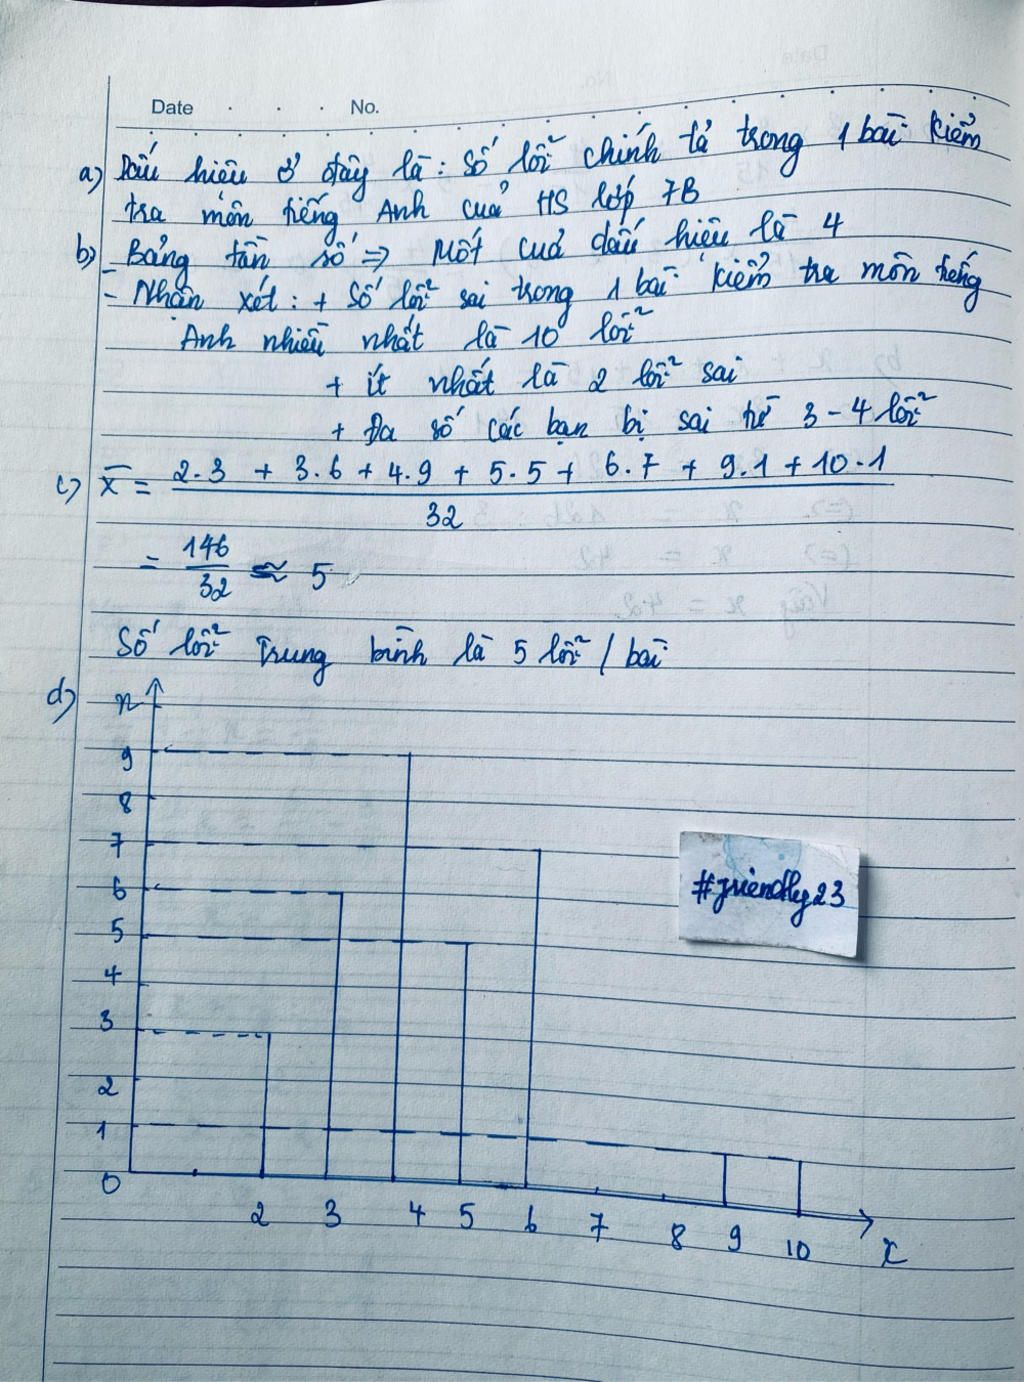 Date . . . No.
a) Dấu hiệu ở đây là: Số lỗi chính tả trong 1 bài kiểm
tra môn tiếng Anh của HS lớp 7B
b) - Bảng tần số => Mốt của dấu hiệu là 4
- Nhận xét: + Số lỗi sai trong 1 bài kiểm tra môn tiếng
Anh nhiều nhất là 10 lỗi
+ ít nhất là 2 lỗi sai
+ Đa số các bạn bị sai từ 3 - 4 lỗi
c) x̄ = (2.3 + 3.6 + 4.9 + 5.5 + 6.7 + 9.1 + 10.1) / 32
= 146/32 ≈ 5
Số lỗi trung bình là 5 lỗi / bài
d) n
9
8
7
6
#friendly23
5
4
3
2
1
0
2 3 4 5 6 7 8 9 10 x